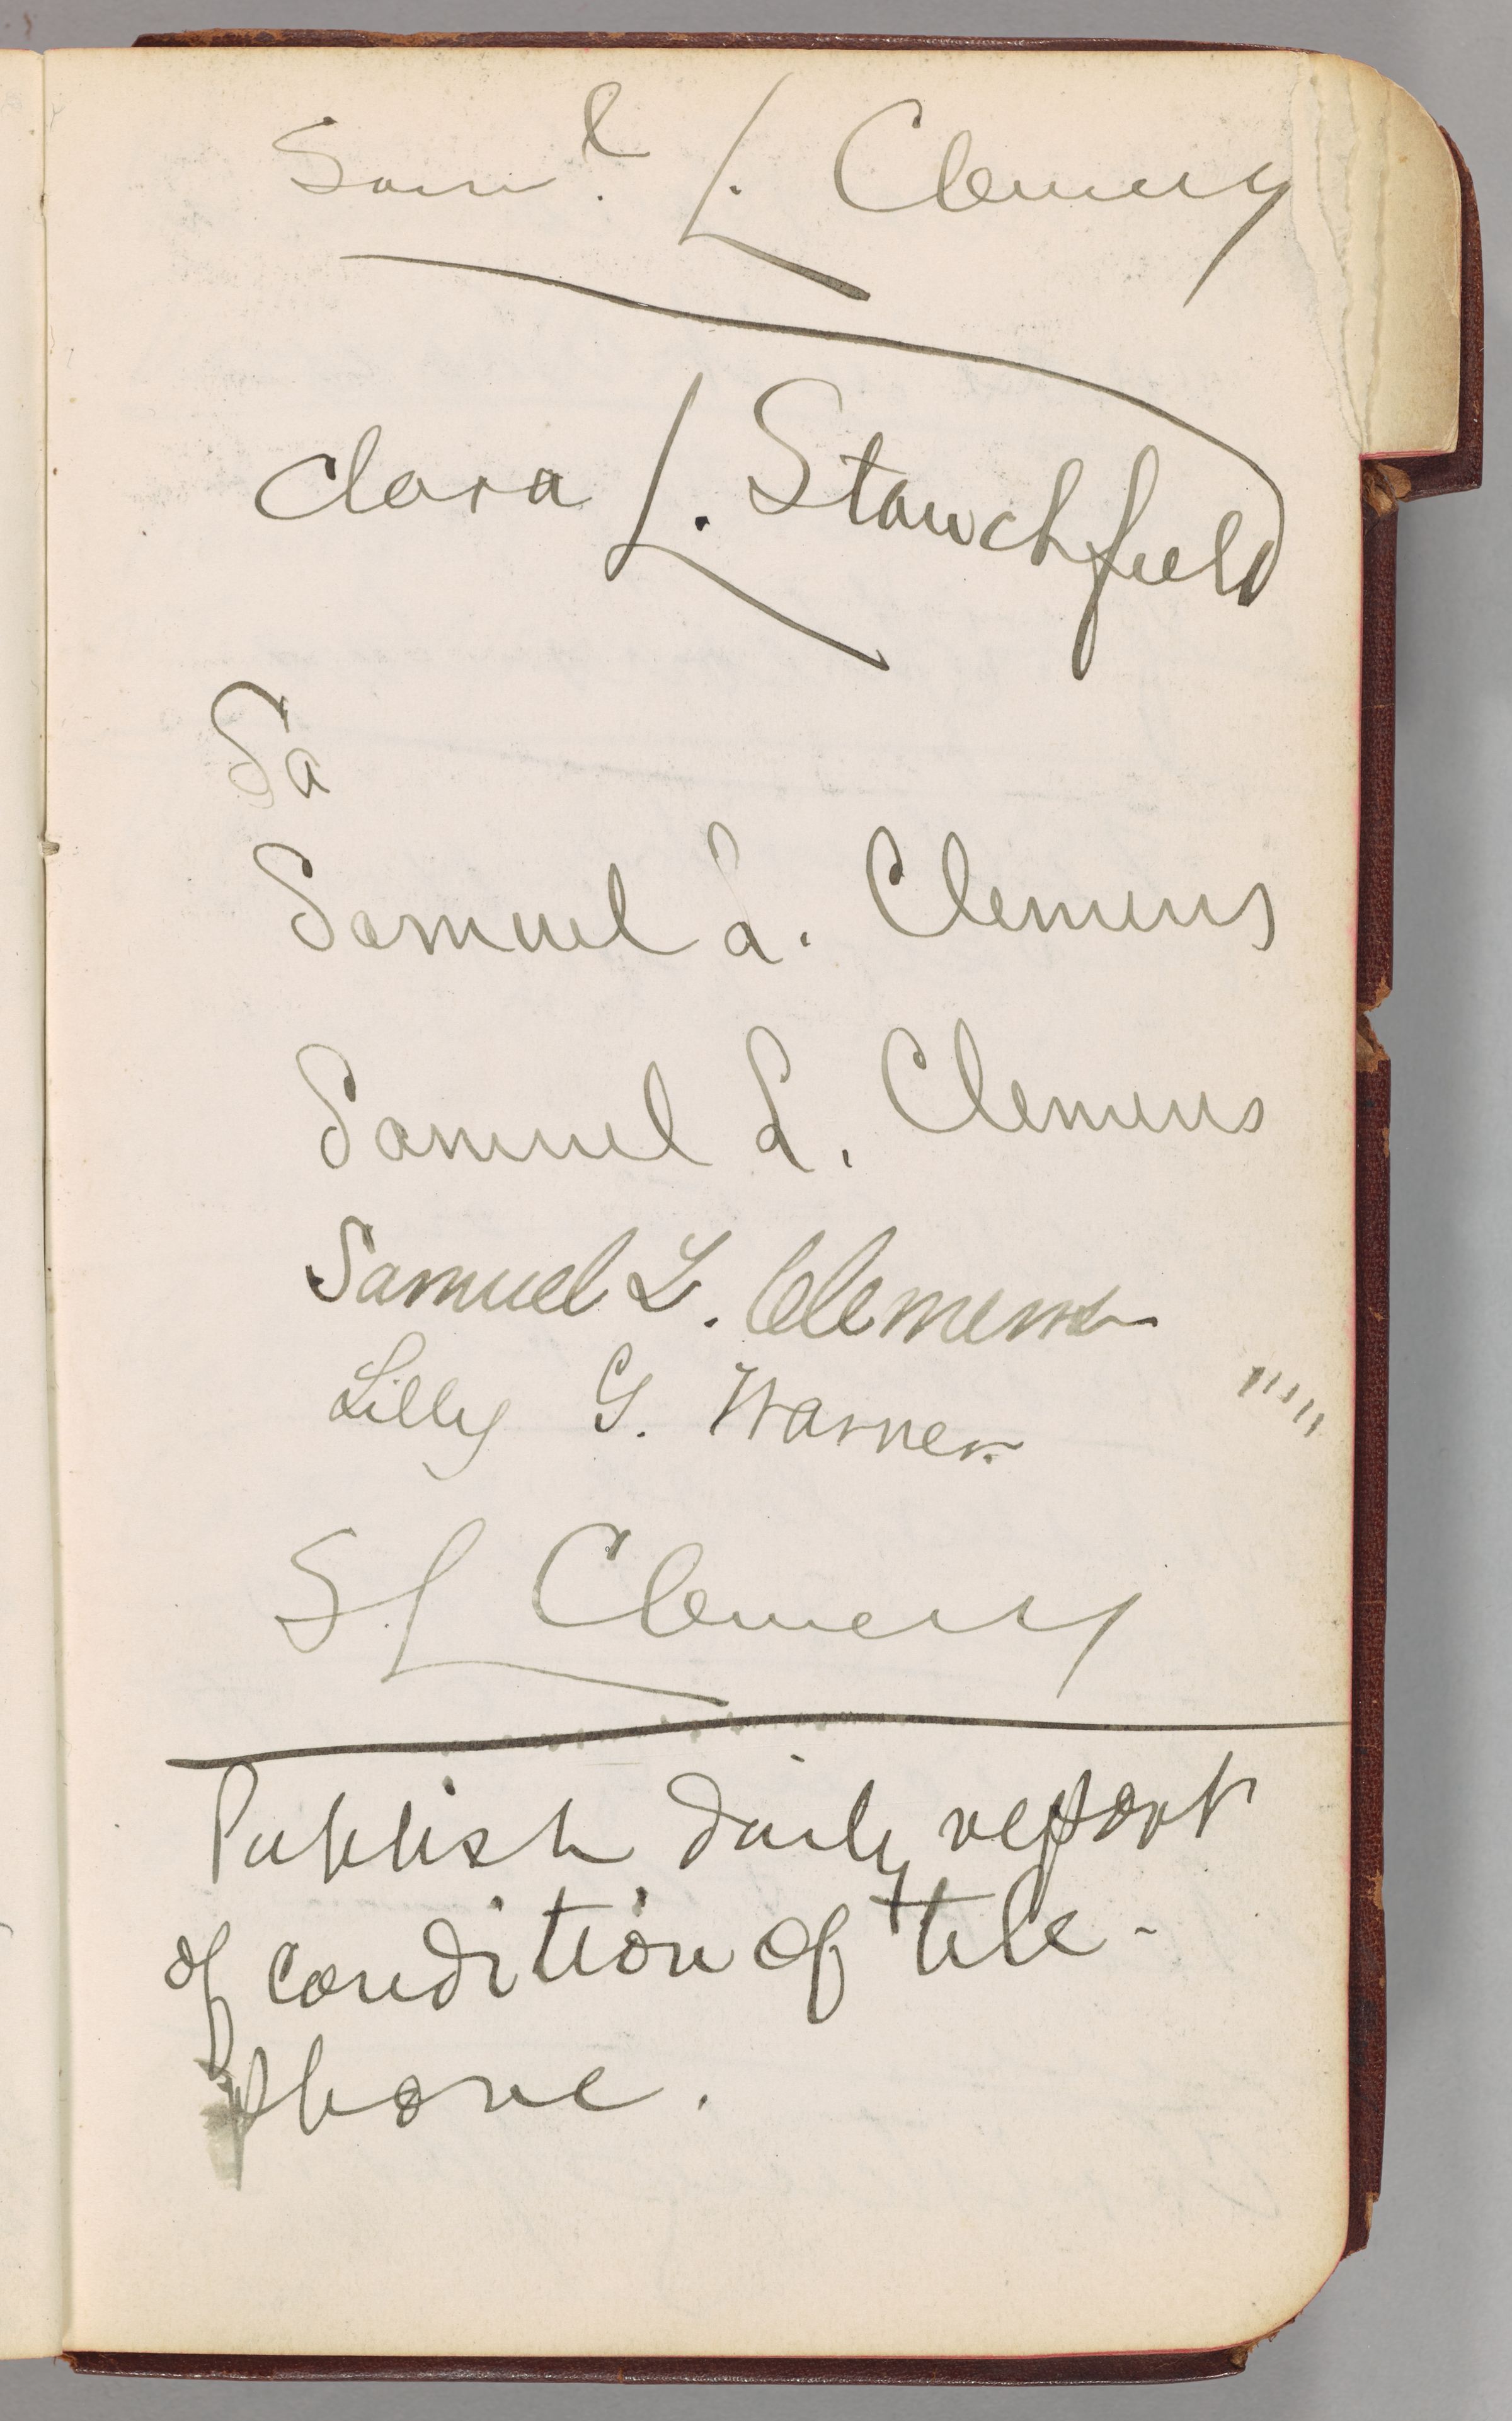 Sam<sup>l</sup>. L. Clemens
Clara L. Stanchfield
Sa
Samuel L. Clemens
Samuel L. Clemens
Samuel L. Clemens
Lilly G. Warner.
S L Clemens
Publish daily report
of condition of tele-
phone.